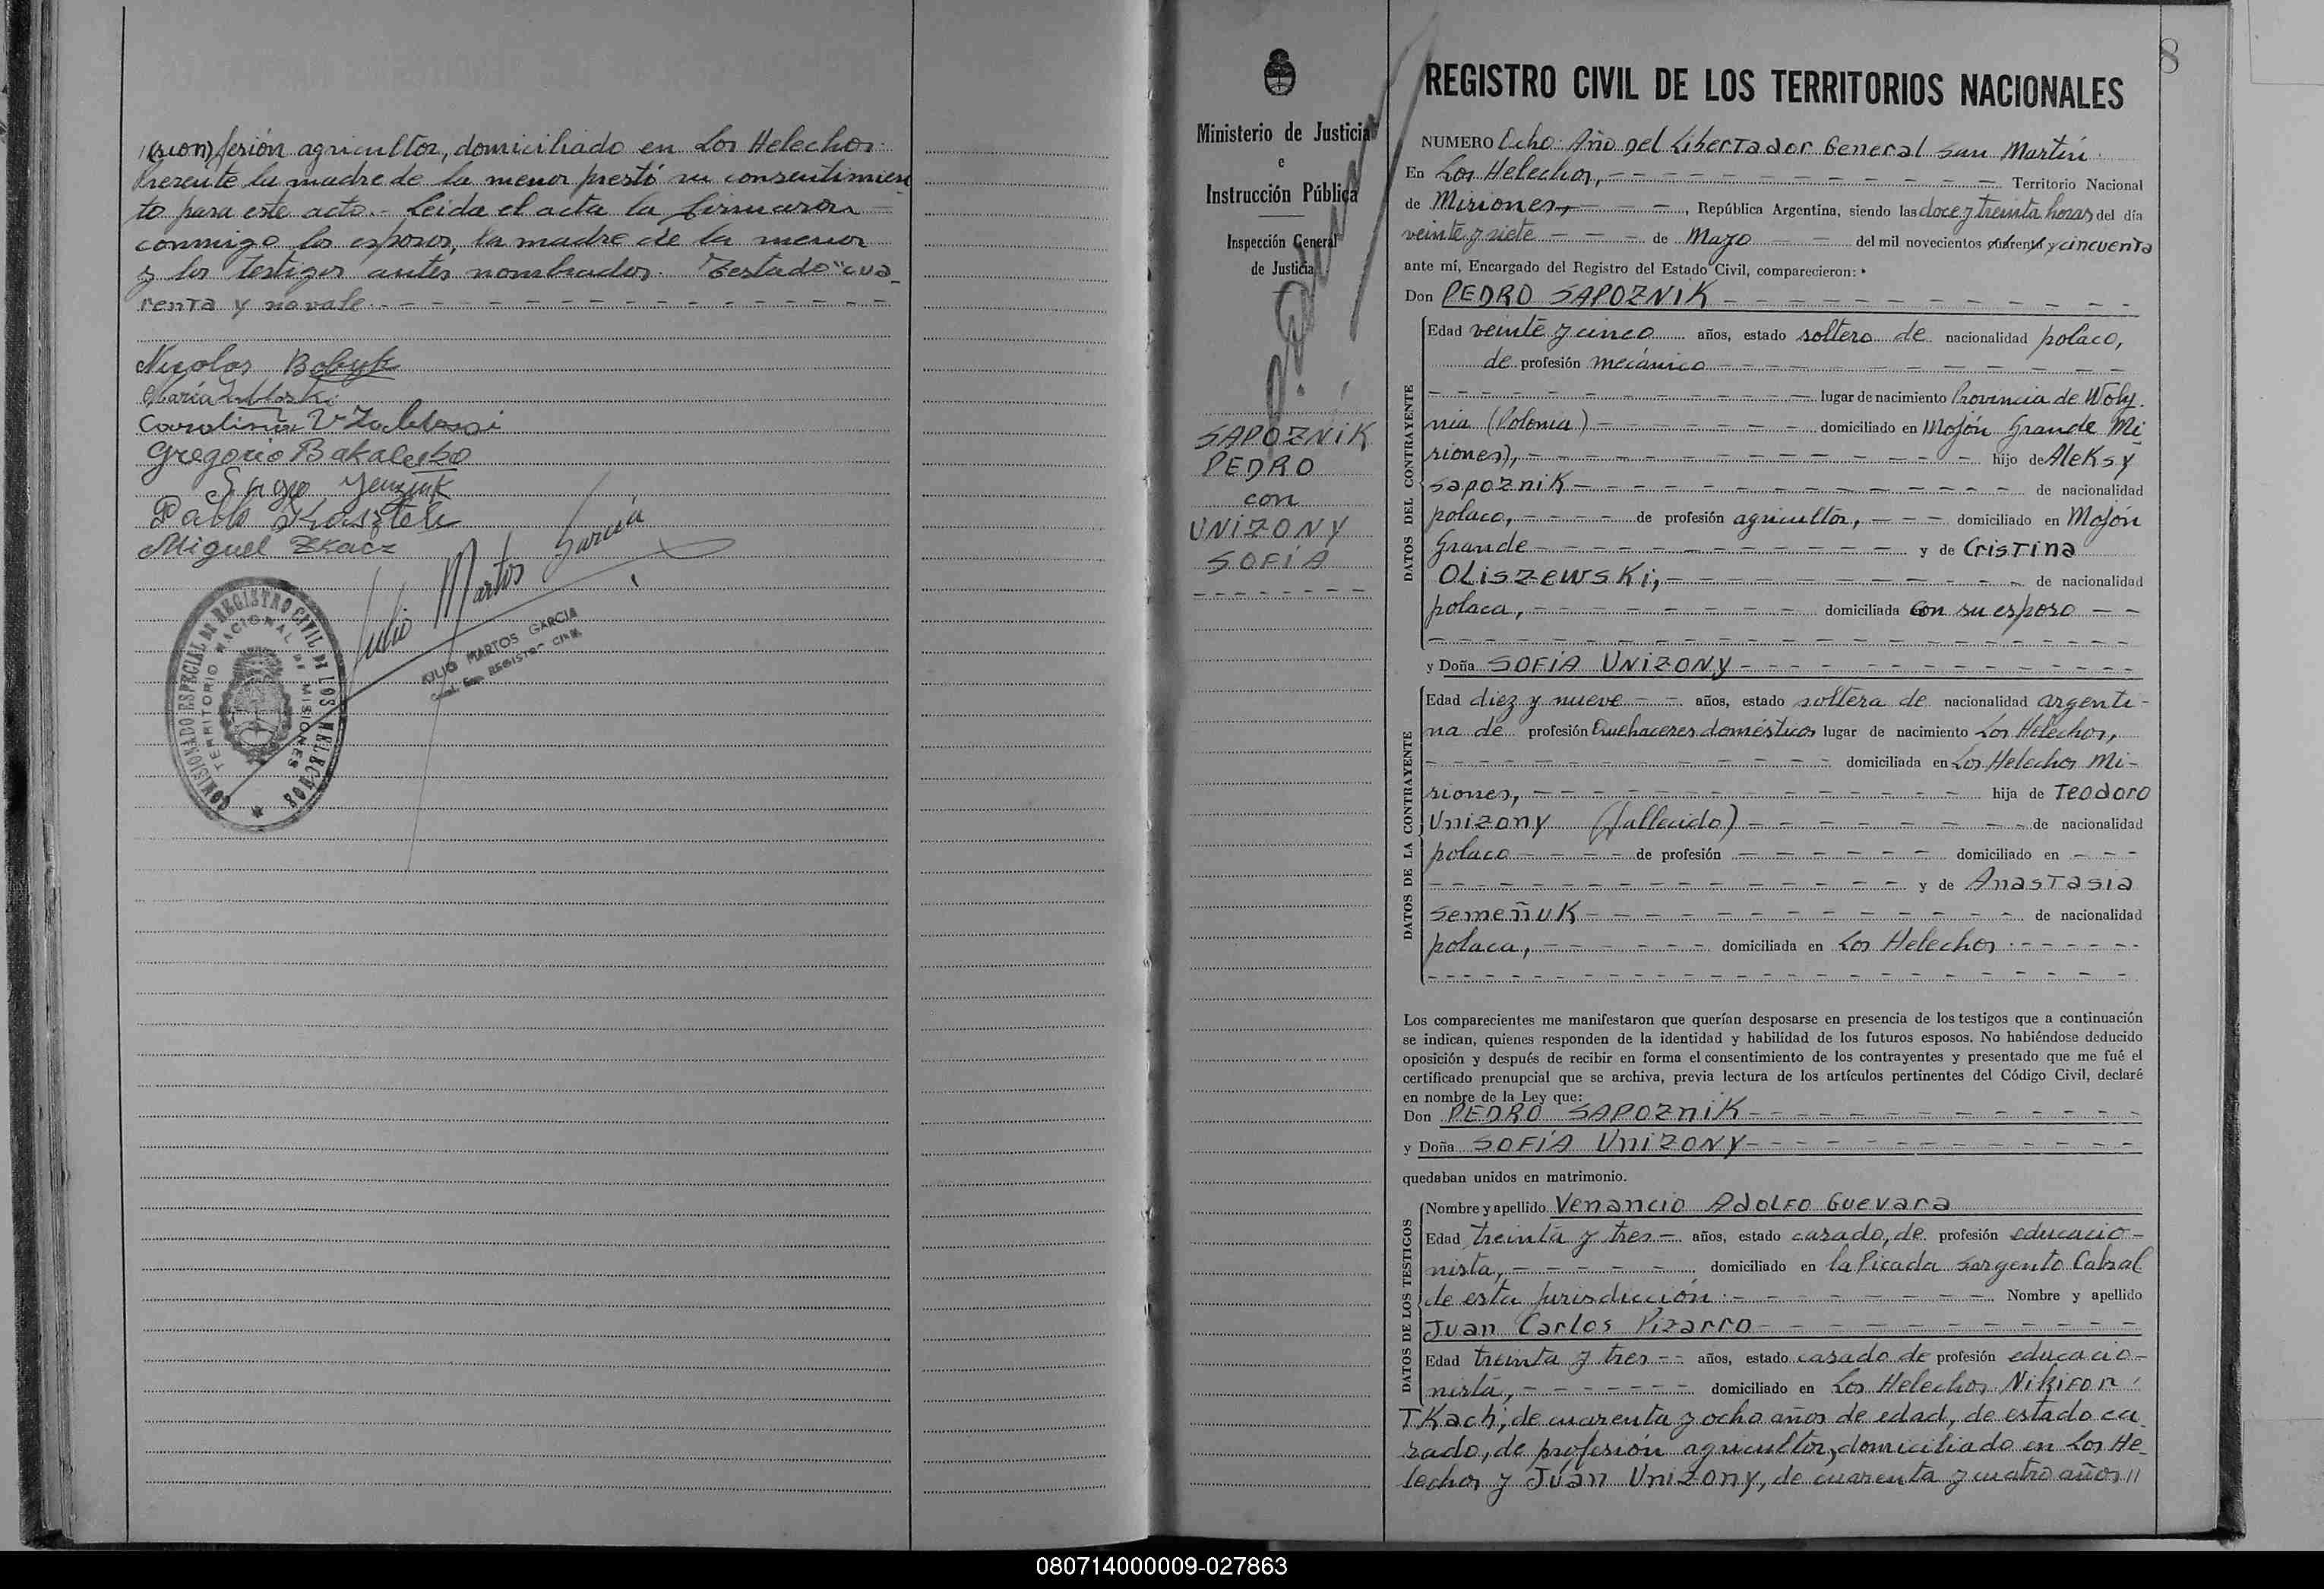 (sion) fesión agricultor, domiciliado en Los Helechos.
Presente la madre de la menor prestó su consentimien
to para este acto.- Leida el acta la firmaron
conmigo los esposos, la madre de la menor
y los testigos antes nombrados. Testado "cua
renta y no vale.
Nicolas Bobyk
María
Carolina V
Gregorio
Pablo
Miguel Tkacz
Julio Martos Garcia
JULIO MARTOS GARCIA
COMISIONADO ESPECIAL DE REGISTRO CIVIL DE LOS HELECHOS
TERRITORIO NACIONAL DE MISIONES
Ministerio de Justicia
e
Instrucción Pública
Inspección General
de Justicia
SAPOZNIK
PEDRO
con
UNIZONY
SOFÍA
8
REGISTRO CIVIL DE LOS TERRITORIOS NACIONALES
NUMERO Ocho. Año del Libertador General San Martín.
En Los Helechos, Territorio Nacional
de Misiones, República Argentina, siendo las doce y treinta horas del día
veinte y siete de Mayo del mil novecientos cuarenta y cincuenta
ante mí, Encargado del Registro del Estado Civil, comparecieron:
Don PEDRO SAPOZNIK
DATOS DEL CONTRAYENTE
Edad veinte y cinco años, estado soltero de nacionalidad polaco,
de profesión mecánico
lugar de nacimiento Provincia de Woly.
nia (Polonia) domiciliado en Mojón Grande Mi
siones), hijo de Aleksy
Sapoznik de nacionalidad
polaco, de profesión agricultor, domiciliado en Mojón
Grande y de Cristina
Oliszewski, de nacionalidad
polaca, domiciliada con su esposo
y Doña SOFÍA UNIZONY
DATOS DE LA CONTRAYENTE
Edad diez y nueve años, estado soltera de nacionalidad argenti-
na de profesión Quehaceres domésticos lugar de nacimiento Los Helechos,
domiciliada en Los Helechos Mi-
siones, hija de Teodoro
Unizony (fallecido) de nacionalidad
polaco de profesión domiciliado en
y de Anastasia
Semeñuk de nacionalidad
polaca, domiciliada en Los Helechos
Los comparecientes me manifestaron que querían desposarse en presencia de los testigos que a continuación
se indican, quienes responden de la identidad y habilidad de los futuros esposos. No habiéndose deducido
oposición y después de recibir en forma el consentimiento de los contrayentes y presentado que me fué el
certificado prenupcial que se archiva, previa lectura de los artículos pertinentes del Código Civil, declaré
en nombre de la Ley que:
Don PEDRO SAPOZNIK
y Doña SOFÍA UNIZONY
quedaban unidos en matrimonio.
DATOS DE LOS TESTIGOS
Nombre y apellido Venancio Adolfo Guevara
Edad treinta y tres años, estado casado, de profesión educacio-
nista, domiciliado en la Picada Sargento Cabral
de esta jurisdicción. Nombre y apellido
Juan Carlos Pizarro
Edad treinta y tres años, estado casado de profesión educacio-
nista, domiciliado en Los Helechos Nikifor
TKach, de cuarenta y ocho años de edad, de estado ca
sado, de profesión agricultor, domiciliado en Los He-
lechos y Juan Unizony, de cuarenta y cuatro años //
080714000009-027863